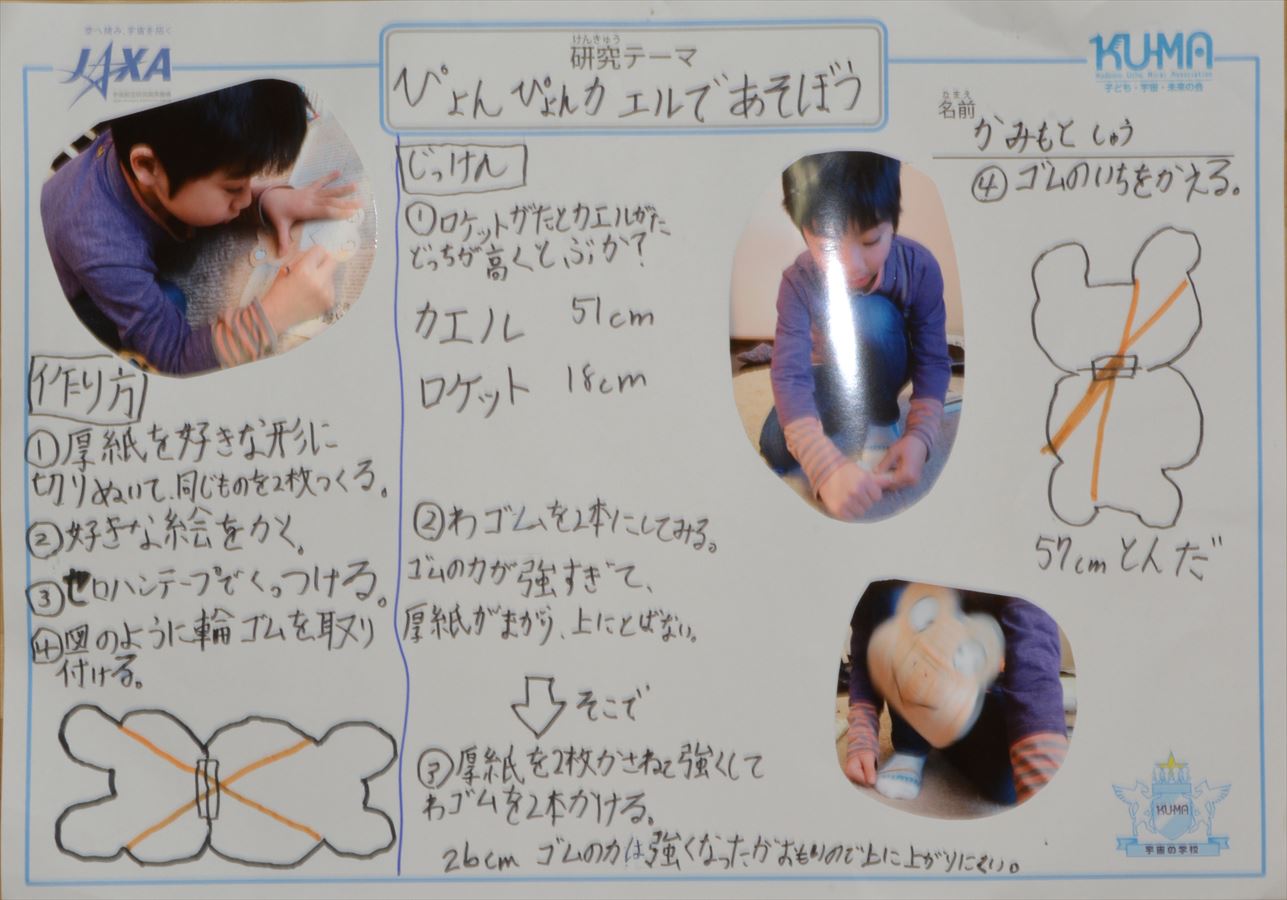 空へ挑み、宇宙を拓く
JAXA
けんきゅう
研究テーマ
ぴょんぴょんカエルであそぼう
KU-MA
Kodomo Uchu Mirai Association
子ども・宇宙・未来の会
なまえ
名前
かみもと しゅう
作り方
①厚紙を好きな形に
切りぬいて、同じものを2枚つくる。
②好きな絵をかく。
③セロハンテープでくっつける。
④図のように輪ゴムを取り
付ける。
じっけん
①ロケットがたとカエルがた
どっちが高くとぶか?
カエル 51cm
ロケット 18cm
②わゴムを2本にしてみる。
ゴムの力が強すぎて、
厚紙がまがり、上にとばない。
そこで
③厚紙を2枚かさねて強くして
わゴムを2本かける。
26cm ゴムの力は強くなったがおもいので上に上がりにくい。
④ゴムのいちをかえる。
57cmとんだ
KU-MA
宇宙の学校